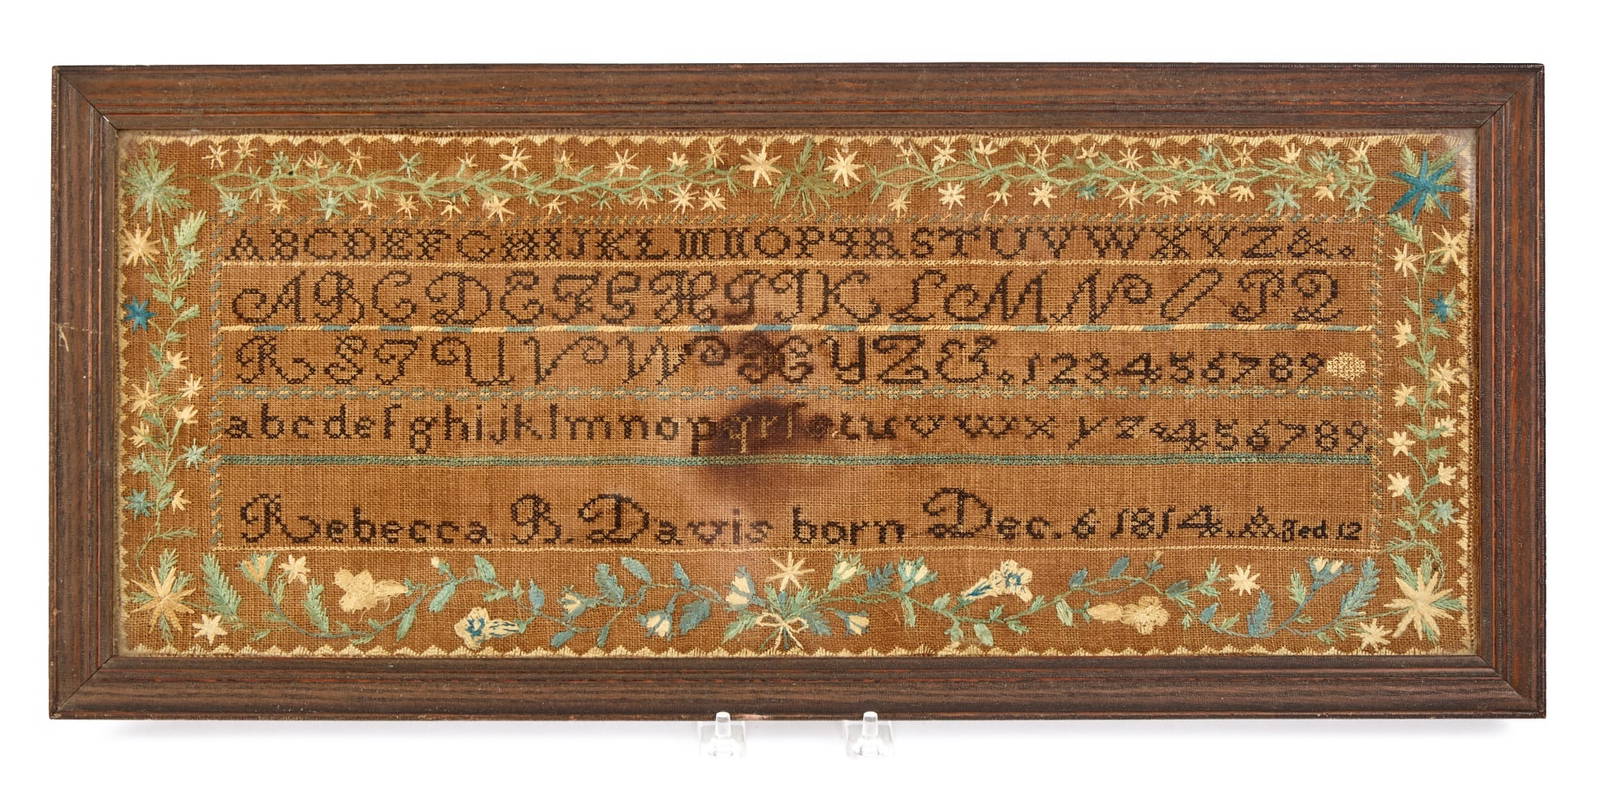 ABCDEFGHIJKLMNOPQRSTUVWXYZ&.
ABCDEFGHIJKLMNOPQ
RSTUVWXYZ&.123456789
abcdefghijklmnopqrſstuvwxyz 3456789
Rebecca R. Davis born Dec. 6 1814. Aged 12